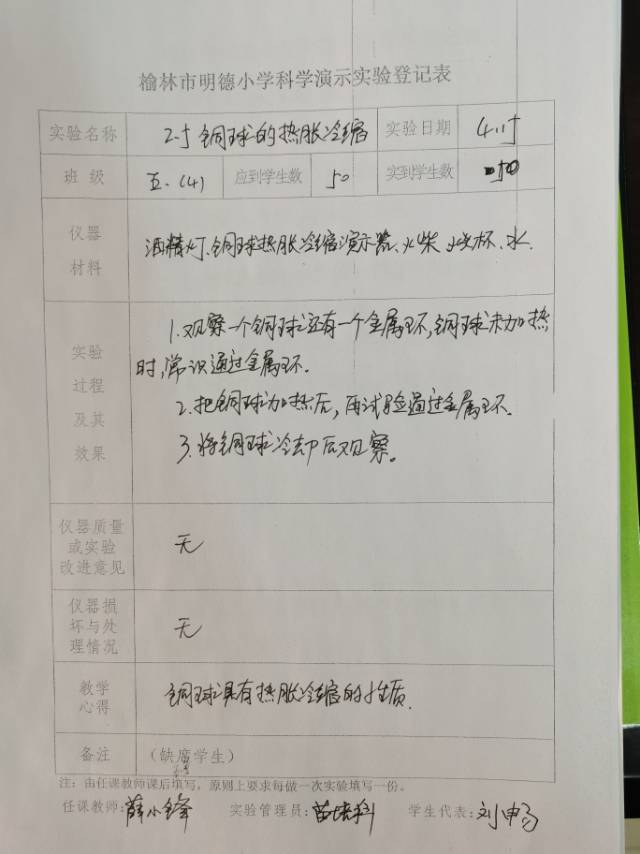 榆林市明德小学科学演示实验登记表
实验名称 2-5 铜球的热胀冷缩 实验日期 4.15
班 级 五.(4) 应到学生数 50 实到学生数 50
仪器
材料
酒精灯、铜球热胀冷缩演示器、火柴、烧杯、水.
实验
过程
及其
效果
1.观察一个铜球还有一个金属环,铜球未加热
时,常识通过金属环.
2.把铜球加热后,再试验通过金属环.
3.将铜球冷却后观察。
仪器质量
或实验
改进意见
无
仪器损
坏与处
理情况
无
教学
心得
铜球具有热胀冷缩的性质.
备注 (缺席学生)
注:由任课教师课后填写,原则上要求每做一次实验填写一份。
任课教师:薛小锋 实验管理员: 学生代表: